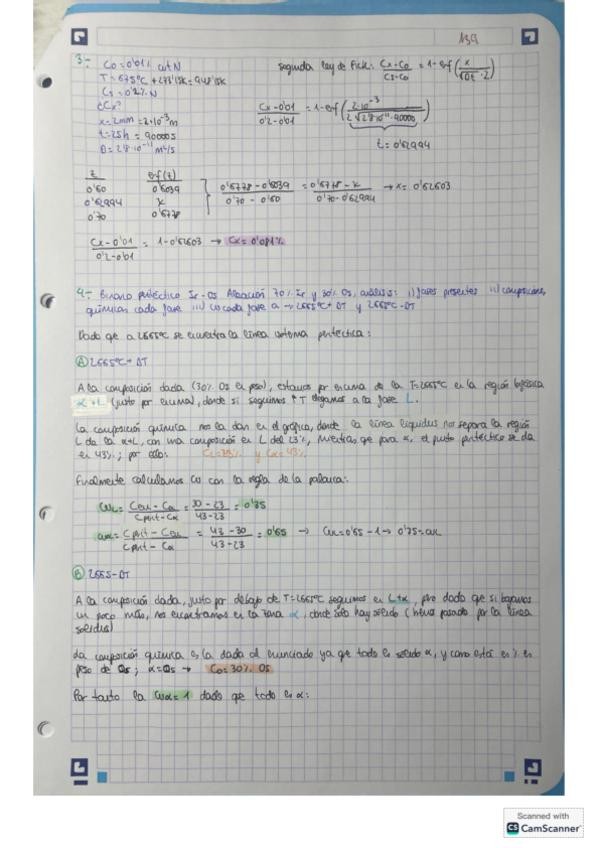 139
3:- C0 = 0'01 % wt N
T = 675°C + 273'15K = 948'15K
Cs = 0'2% N
¿Cx?
x = 2mm = 2·10⁻³ m
t = 25h = 90000s
D = 2'8·10⁻¹¹ m²/s
segunda ley de Fick: (Cx-C0)/(Cs-C0) = 1-erf(x/(√(Dt)·2))
(Cx-0'01)/(0'2-0'01) = 1-erf(2·10⁻³/(2√(2'8·10⁻¹¹·90000)))
t = 0'62994
t erf(t)
0'60 0'6039
0'62994 x
0'70 0'6778
(0'6778-0'6039)/(0'70-0'60) = (0'6778-x)/(0'70-0'62994) → x = 0'62603
(Cx-0'01)/(0'2-0'01) = 1-0'62603 → Cx = 0'081%
4:- Binario peritéctico Ir-Os Aleación 70% Ir y 30% Os, análisis: i) fases presentes ii) composiciones
químicas cada fase iii) ω cada fase a → 2665°C+ΔT y 2665°C-ΔT
Dado que a 2665°C se encuentra la línea isoterma peritéctica:
A 2665°C+ΔT
A la composición dada (30% Os en peso), estamos por encima de la T=2665°C en la región bifásica
α+L (justo por encima), donde si seguimos ↑T llegamos a la fase L.
La composición química nos la dan en el gráfico, donde la línea liquidus nos separa la región
L de la α+L, con una composición en L del 23%, mientras que para α, el punto peritéctico se da
en 43%; por ello: CL=23% y Cα=43%
Finalmente calculamos ω con la regla de la palanca:
= 30-23/43-23 = 0'35
= 43-30/43-23 = 0'65
B 2665-ΔT
A la composición dada, justo por debajo de T=2665°C seguimos en L+α, pero dado que si bajamos
un poco más, nos encontramos en la zona α, donde sólo hay sólido (hemos pasado por la línea
solidus)
La composición química es la dada al enunciado ya que todo es sólido α, y como está en % en
peso de Os; α=Os → C0=30% Os
Por tanto la ωα=1 dado que todo es α:
Scanned with
CS CamScanner